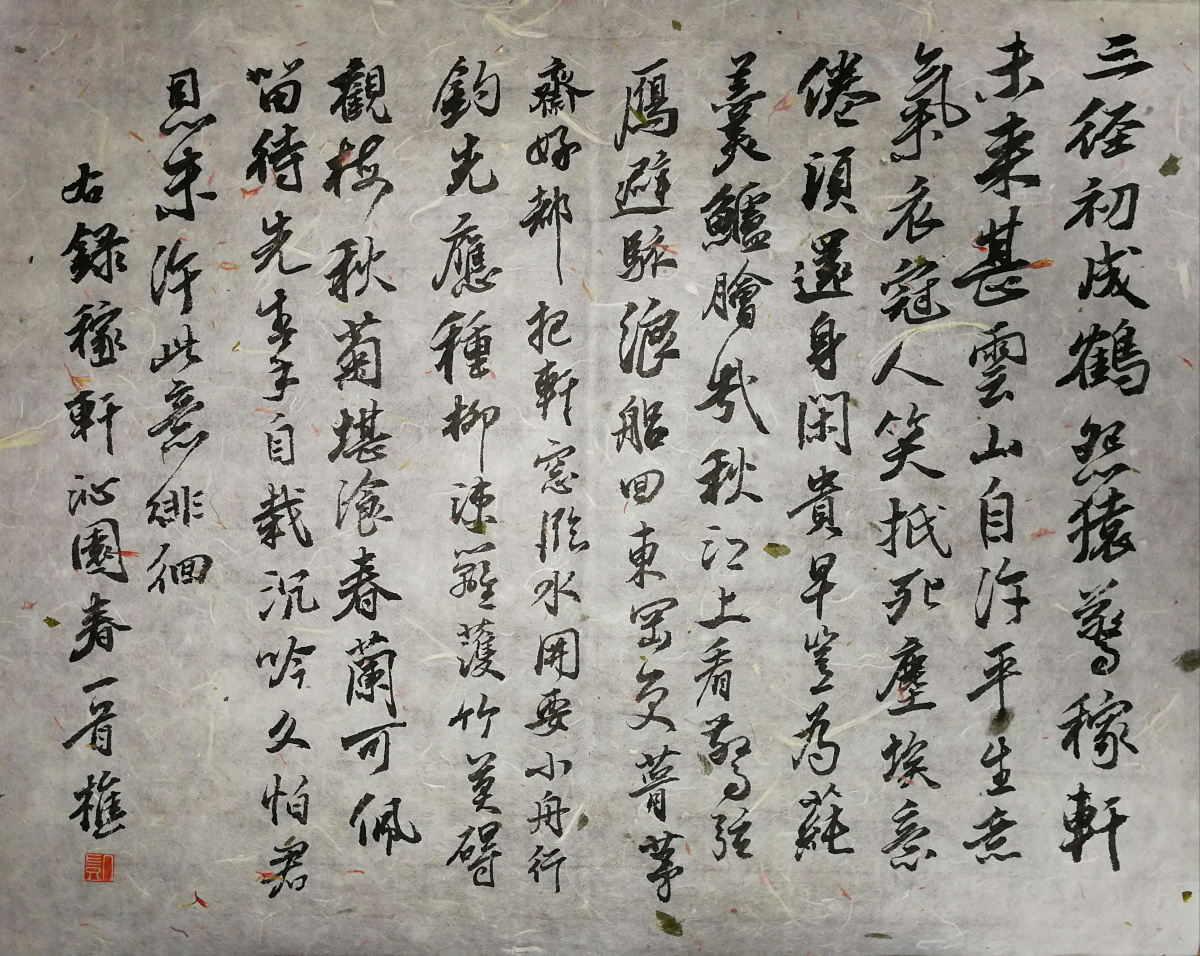 三径初成鶴怨猿驚稼軒
未來甚雲山自許平生意
氣衣冠人笑抵死塵埃意
倦須還身閑貴早豈為蓴
羹鱸膾哉秋江上看驚弦
鴈避駭浪船回東岡更葺茅
齋好都把軒窓臨水開要小舟行
釣先應種柳疎籬護竹莫碍
觀梅秋菊堪湌春蘭可佩
留待先生手自栽沉吟久怕君
恩未許此意徘徊
右錄稼軒沁園春